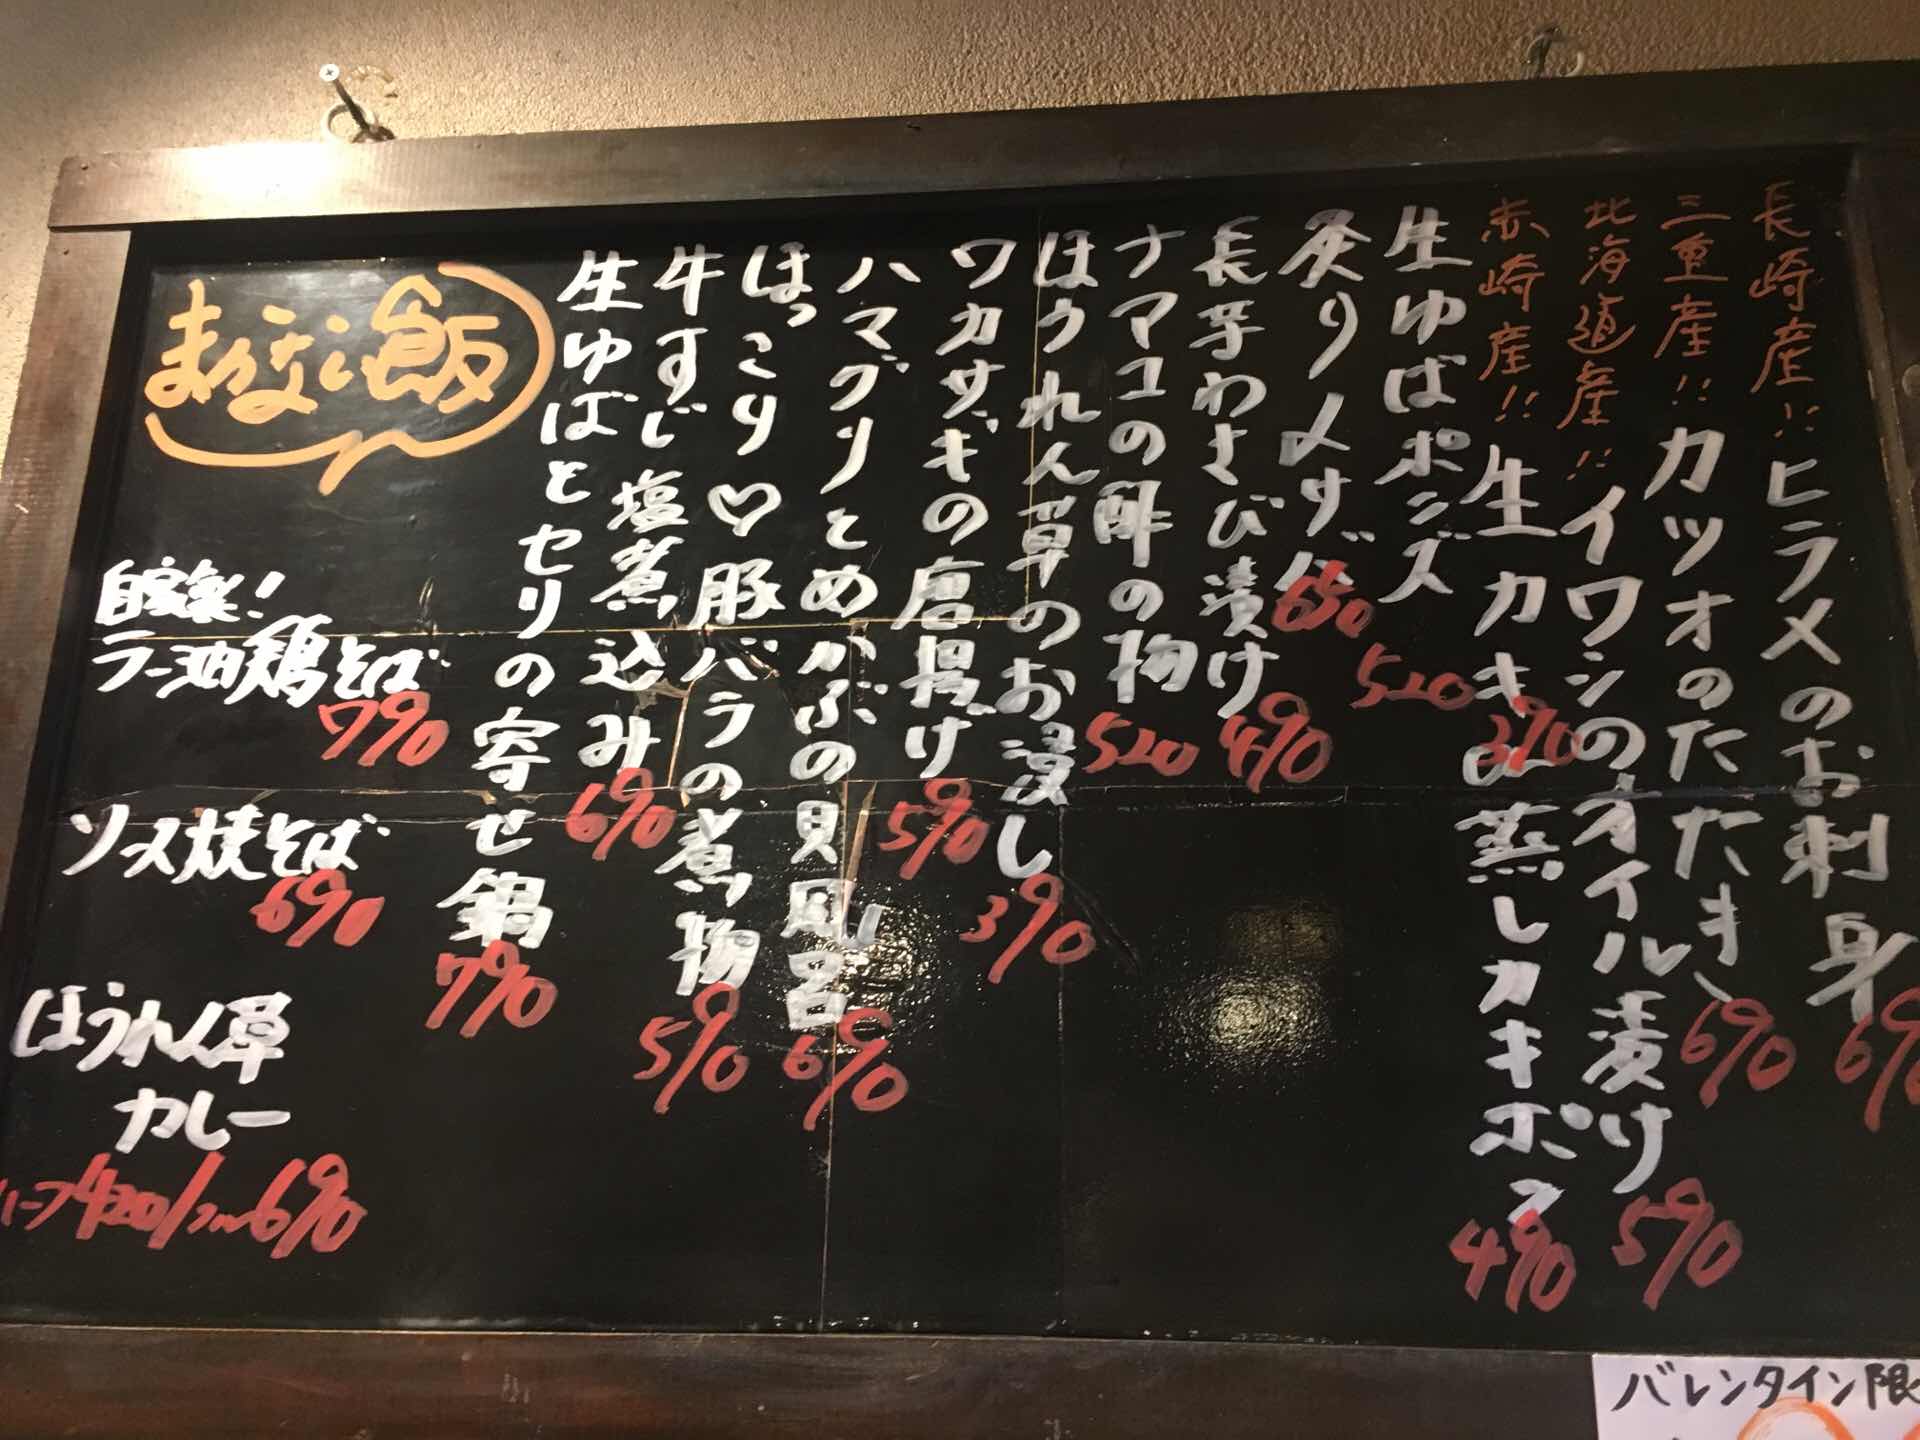 長崎産!! ヒラメのお刺身 690
三重産!! カツオのたたき 690
北海道産!! イワシのオイル漬け 590
赤崎産!! 生カキor蒸しカキポン 490
390
生ゆばポンズ 520
炙り〆サバ 650
長芋わさび漬け 490
ナマコの酢の物 520
ほうれん草のお浸し 390
ワカサギの唐揚げ 590
ハマグリとめかぶの貝風呂 690
ほっこり♡豚バラの煮物 590
牛すじ塩煮込み 690
生ゆばとセリの寄せ鍋 790
まかない飯
自家製!
ラー油鶏そば 790
ソース焼そば 690
ほうれん草
カレー
ハーフ420/フル690
バレンタイン限